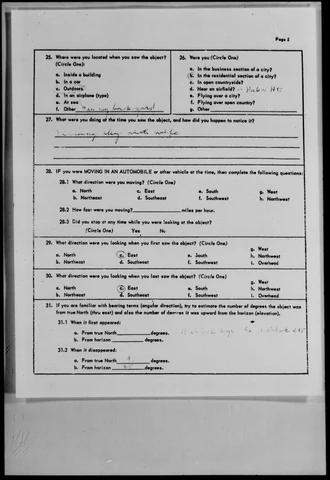 Page 2
25. Where were you located when you saw the object? 26. Were you (Circle One)
(Circle One):
a. Inside a building
b. In a car
c. Outdoors
d. In an airplane (type)
e. At sea
f. Other in my back yard
a. In the business section of a city?
b. In the residential section of a city?
c. In open countryside?
d. Near an airfield?
e. Flying over a city?
f. Flying over open country?
g. Other
27. What were you doing at the time you saw the object, and how did you happen to notice it?
with wife
28. IF you were MOVING IN AN AUTOMOBILE or other vehicle at the time, then complete the following questions:
28.1 What direction were you moving? (Circle One)
a. North c. East e. South g. West
b. Northeast d. Southeast f. Southwest h. Northwest
28.2 How fast were you moving? miles per hour.
28.3 Did you stop at any time while you were looking at the object?
(Circle One) Yes No
29. What direction were you looking when you first saw the object? (Circle One)
a. North c. East e. South g. West
b. Northeast d. Southeast f. Southwest h. Northwest
i. Overhead
30. What direction were you looking when you last saw the object? (Circle One)
a. North c. East e. South g. West
b. Northeast d. Southeast f. Southwest h. Northwest
i. Overhead
31. If you are familiar with bearing terms (angular direction), try to estimate the number of degrees the object was
from true North (thru east) and also the number of degrees it was upward from the horizon (elevation).
31.1 When it first appeared:
a. From true North degrees.
b. From horizon degrees.
31.2 When it disappeared:
a. From true North degrees.
b. From horizon degrees.